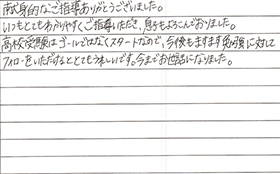 献身的なご指導ありがとうございました。
いつもとてもわかりやすくご指導いただき、息子もよろこんでおりました。
高校受験はゴールではなくスタートなので、今後もますます勉強に対して
フォローをいただけるととてもうれしいです。今までお世話になりました。